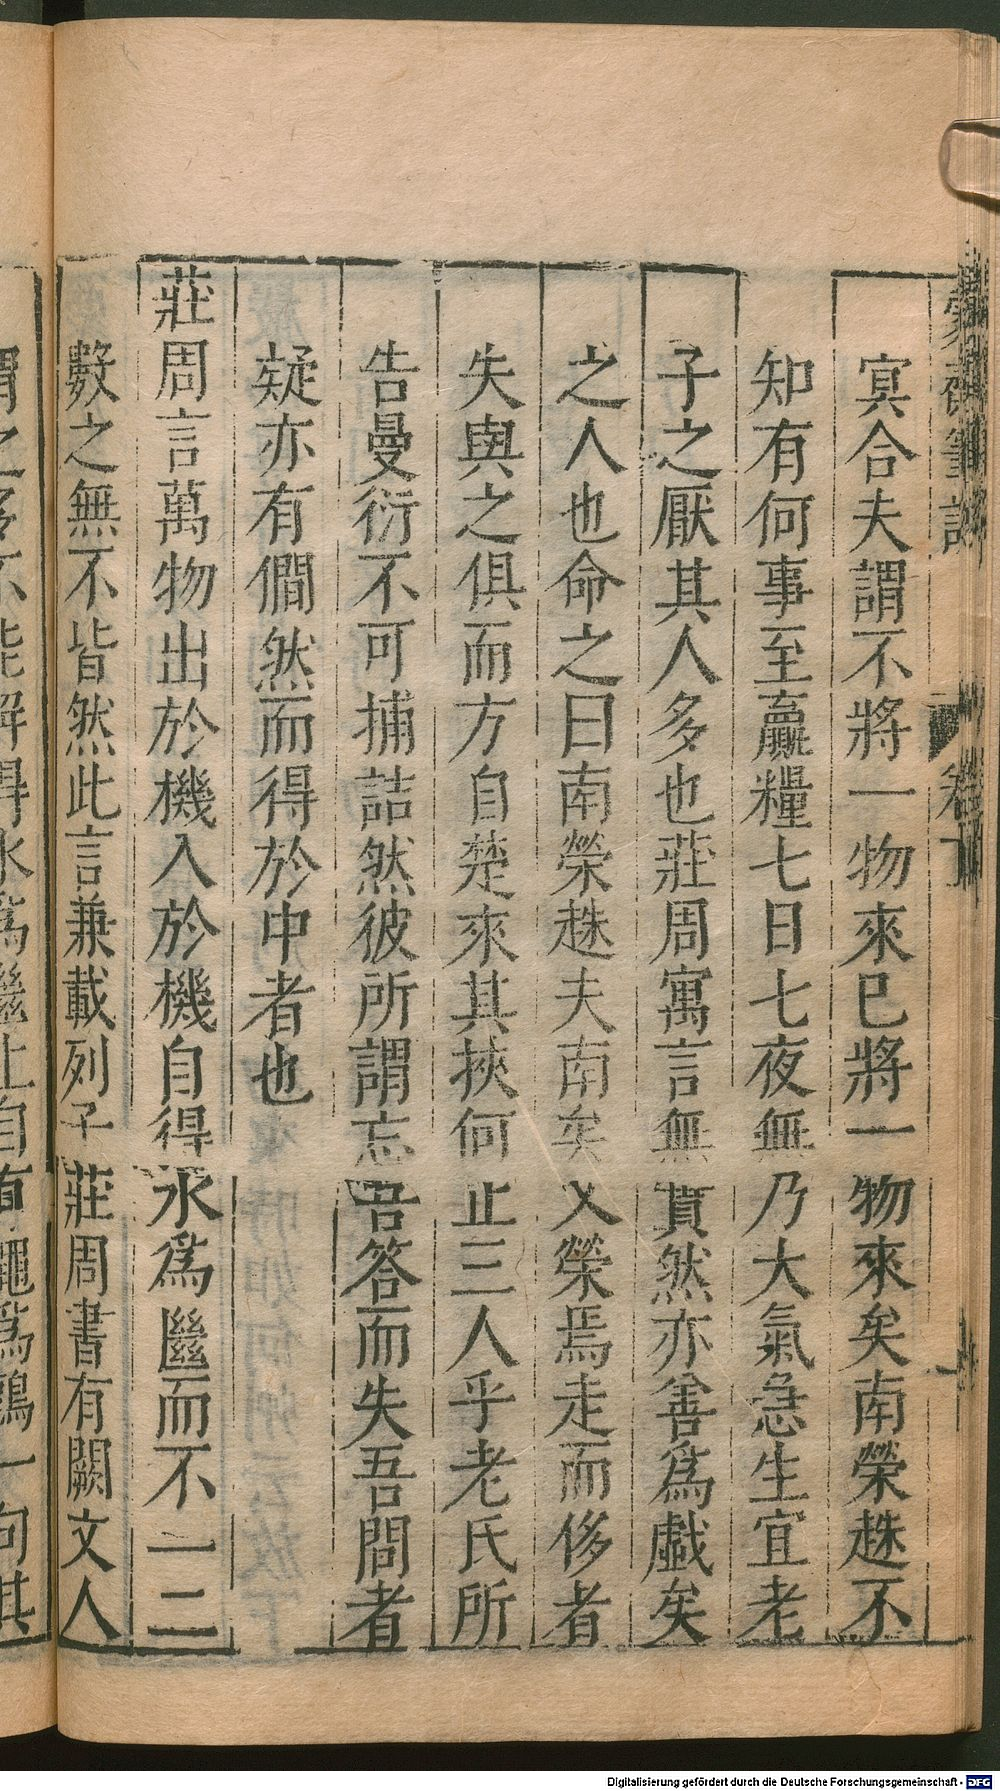 冥合夫謂不將一物來已將一物來矣南榮趎不
知有何事至贏糧七日七夜無乃大氣急生宜老
子之厭其人多也莊周寓言無真然亦善為戲矣
之人也命之曰南榮趎夫南矣又榮焉走而侈者
失與之俱而方自楚來其挾何止三人乎老氏所
告曼衍不可捕詰然彼所謂忘吾答而失吾問者
疑亦有僩然而得於中者也
莊周言萬物出於機入於機自得水為㡭而不一二
數之無不皆然此言兼載列子莊周書有闕文人
謂之 不能解得水為㡭止自有䵷為鶉一句其
卷下
Digitalisierung gefördert durch die Deutsche Forschungsgemeinschaft - DFG